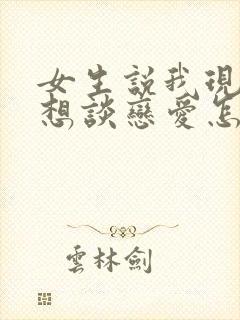 女生説我現
想談戀愛怎
雲林劍